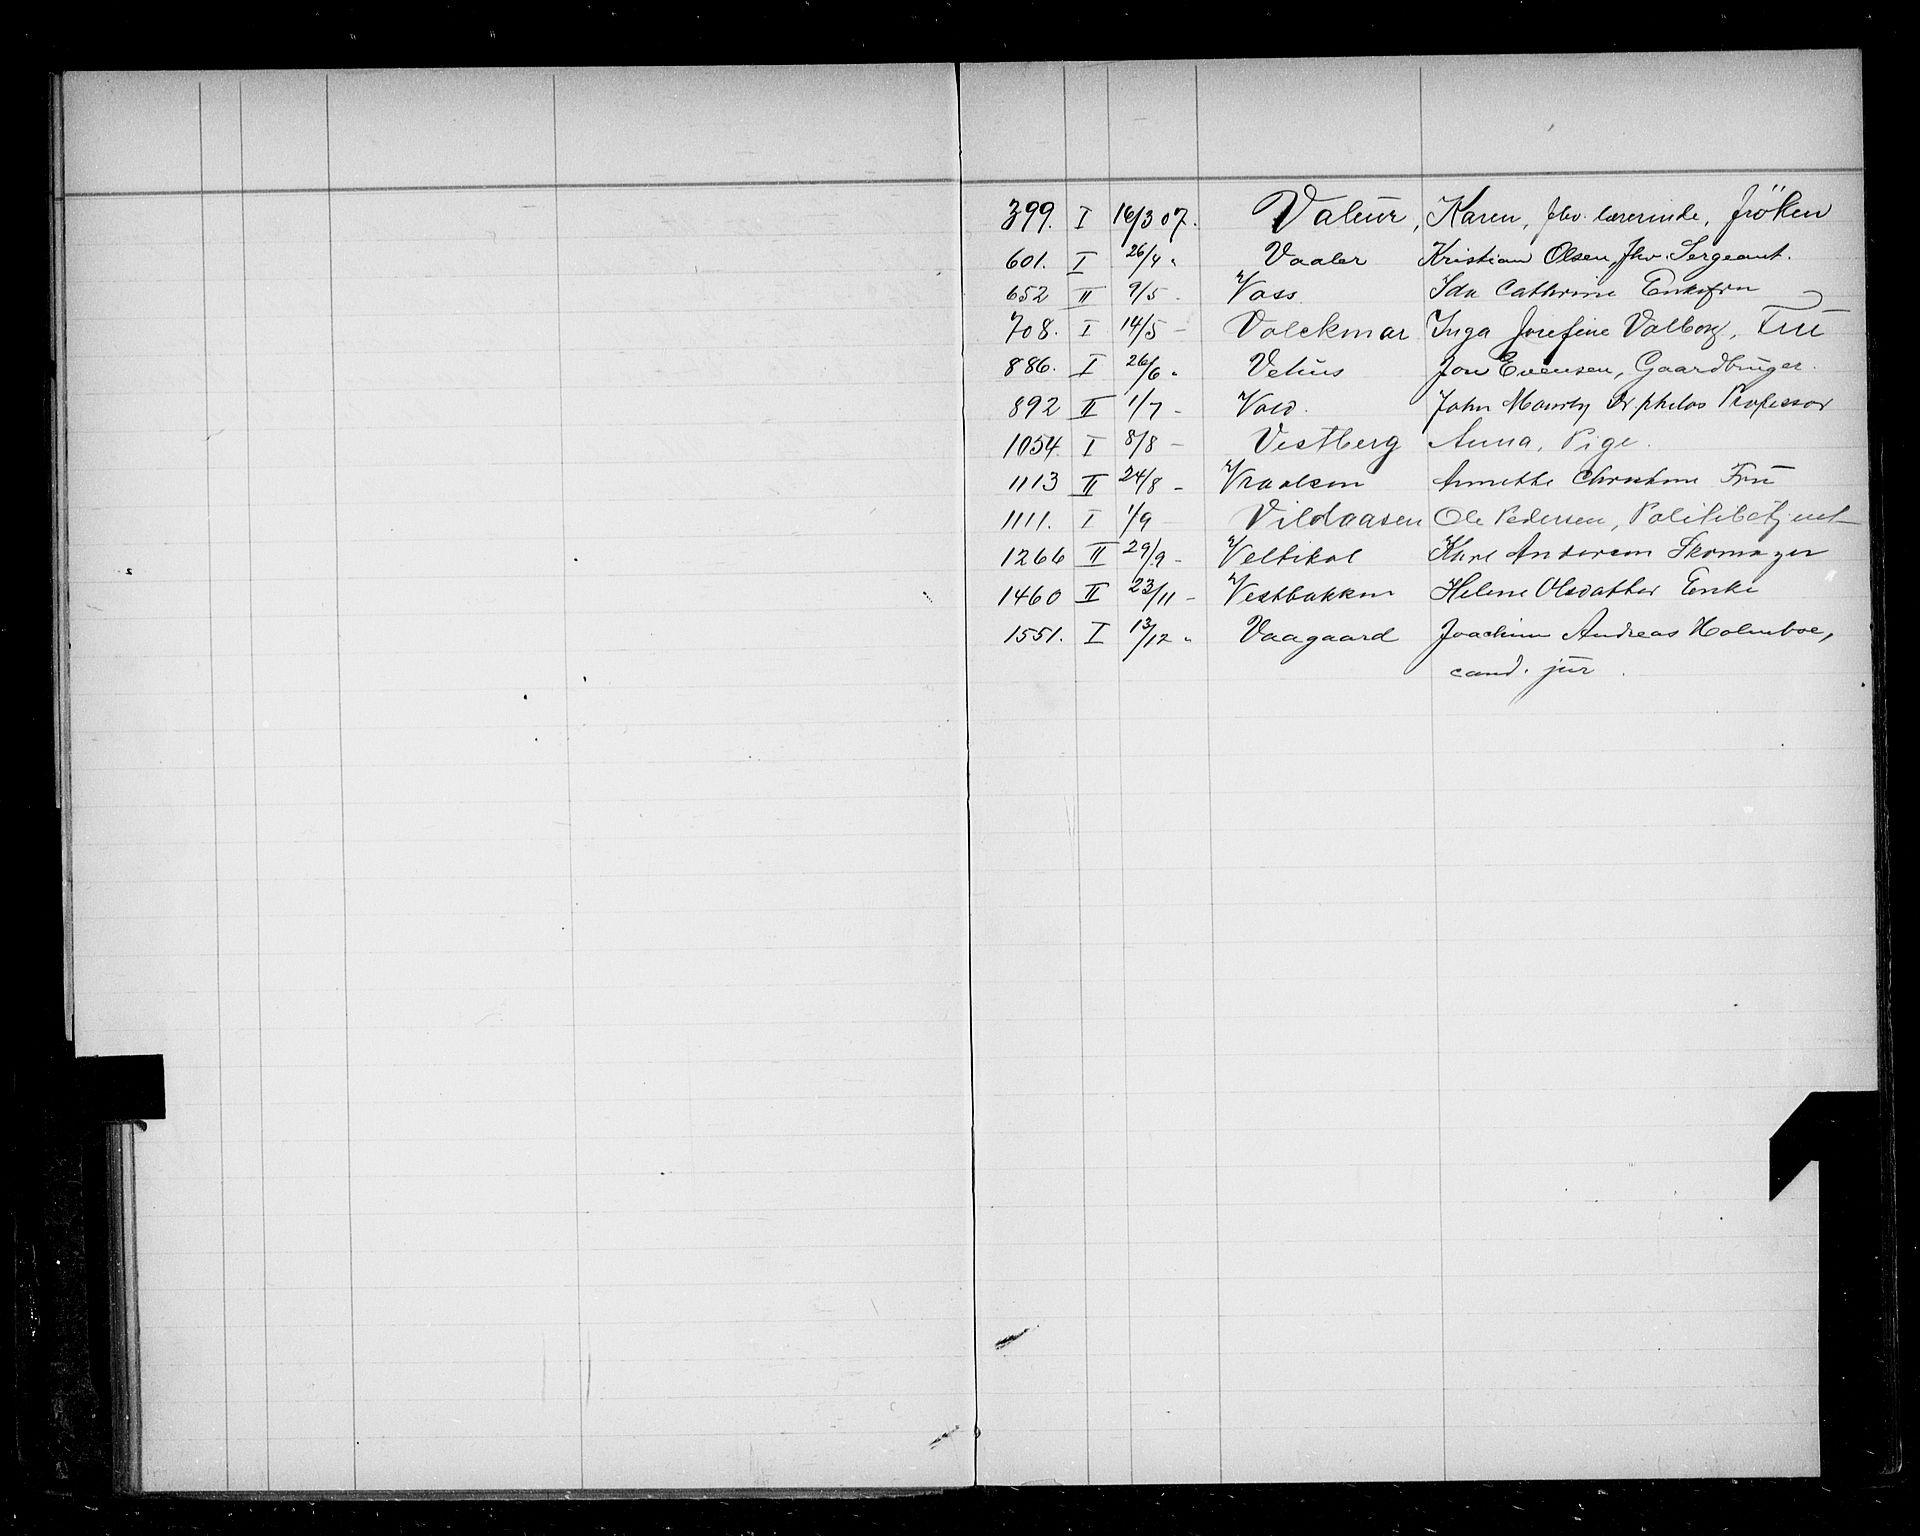 399. I 16/3 07. Valeur, Karen, fhv. lærerinde, frøken
601. I 26/4 " Vaaler Kristian Olsen, fhv. Sergeant.
652 II 9/5 - Voss Ida Cathrine Enkefru
708. I 14/5 - Volckmar Inga Josefine Valborg, Frue
886. I 26/6 " Vehus Jon Evensen, Gaardbruger.
892 II 1/7 - Vold. John Mourly Dr. philos Professor
1054. I 8/8 - Vestberg Anna, Pige.
1113 II 24/8 - Vraalsen Annette Christine Frue
1111. I 1/9 - Vildaasen Ole Pedersen, Politibetjent
1266 II 29/9 - Veltikol Karl Andersen Skomager
1460 II 23/11 - Vestbakken Helene Olsdatter Enke
1551. I 13/12 " Vaagaard Joachim Andreas Holmboe,
cand. jur.